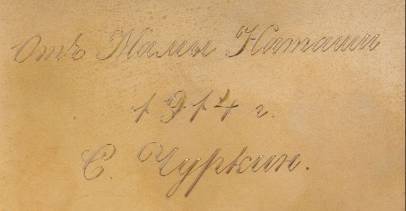 Отъ Мамы Наташи
1914 г.
С. Чуркин.